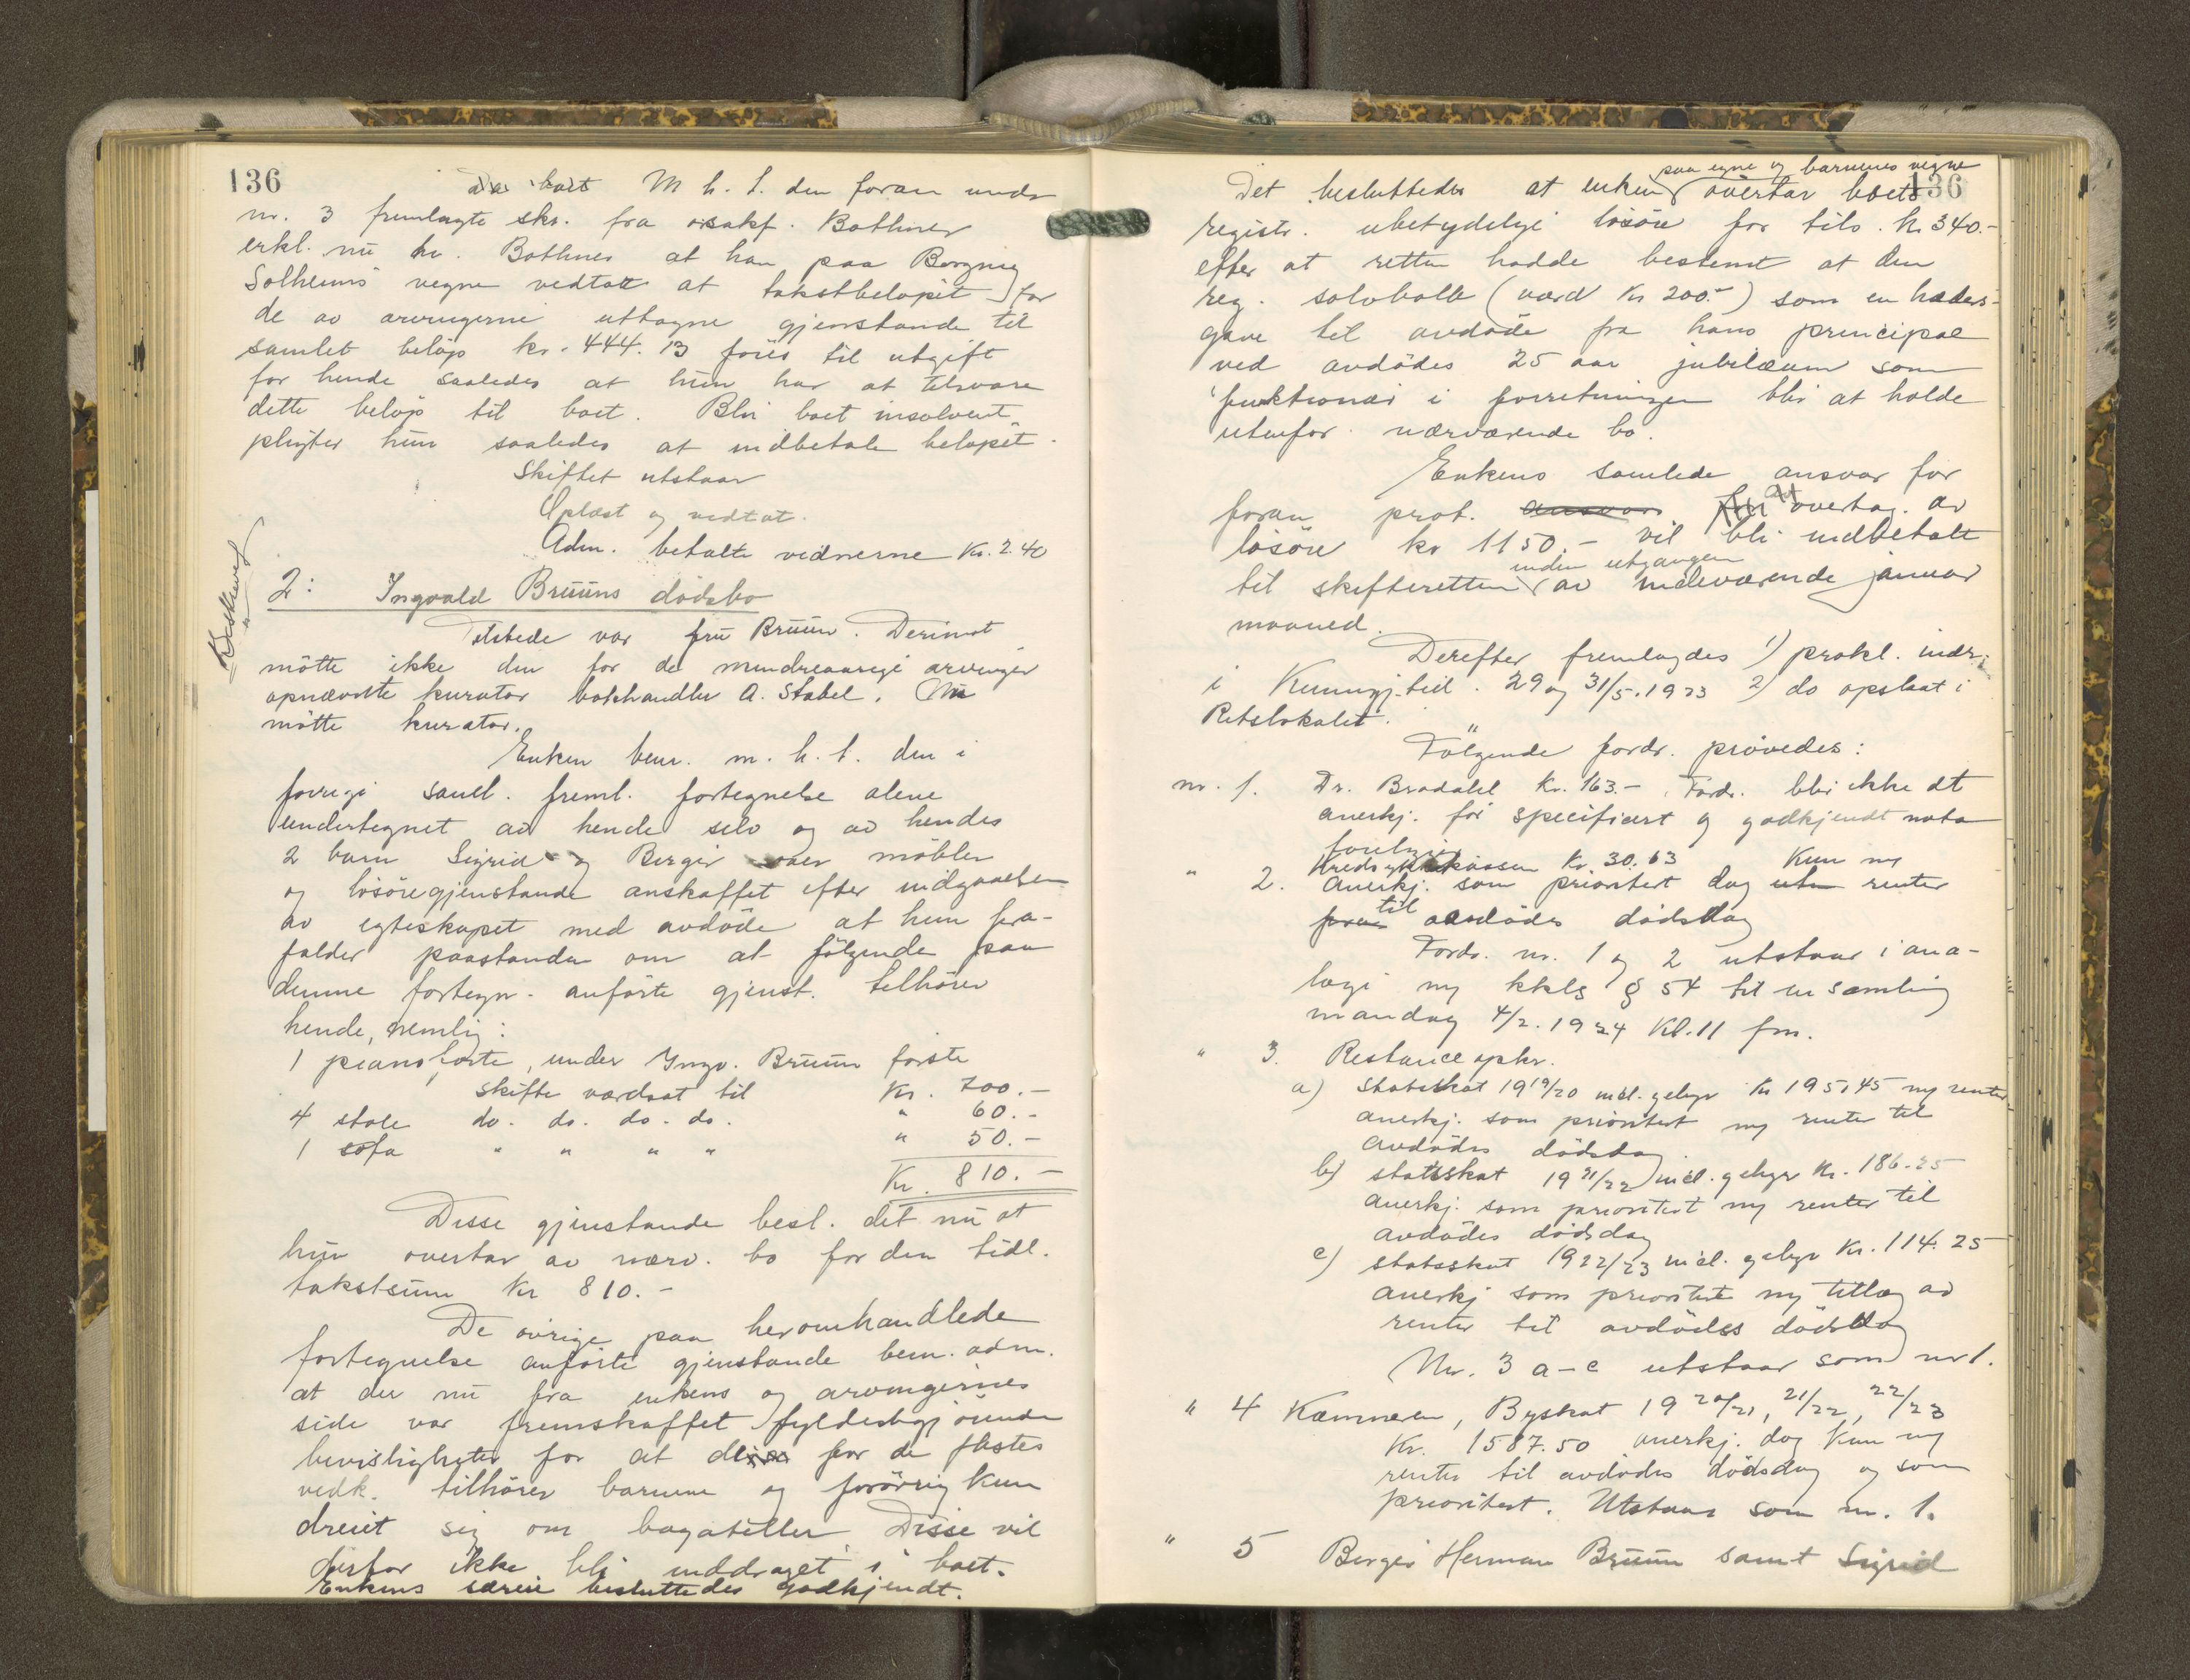 136
M h. t. den foran under
nr. 3 fremlagte skr. fra osakf. Bothner
erkl. nu hr. Bothner at han paa Borgny
Solheims vegne vedtatt at takstbeløpet for
de av arvingerne uttagne gjenstande til
samlet beløp kr. 444.13 føres til utgift
for hende saaledes at hun har at tilsvare
dette beløp til boet. Blir boet insolvent
pligter hun saaledes at indbetale beløpet.
Skiftet utstaar
Oplæst og vedtat.
Adm. betalte vidnerne Kr. 2.40
Beskrevet
2: Ingvald Bruuns dødsbo
Tilstede var fru Bruun. Derimot
møtte ikke den for de mindreaarige arvinger
opnævnte kurator bokhandler A. Stabel. Nu
møtte kurator.
Enken bem. m. h. t. den i
forrige saml. freml. fortegnelse alene
undertegnet av hende selv og av hendes
2 barn Sigrid og Birger over møbler
og løsøregjenstande anskaffet efter indgaaelsen
av egteskapet med avdøde at hun fra-
falder paastanden om at følgende paa
denne fortegn. anførte gjenst. tilhører
hende, nemlig:
1 pianoforte, under Ingv. Bruun første
skifte værdsat til Kr. 700.-
4 stole do. do. do. do. " 60.-
1 sofa " " " " " 50.-
Kr. 810.-
Disse gjenstande besl. det nu at
hun overtar av nærv. bo for den tidl.
takstsum Kr 810.-
De øvrige paa heromhandlede
fortegnelse anførte gjenstande bem. adm.
at der nu fra enkens og arvingernes
side var fremskaffet fyldestgjørende
bevisligheter for at disse for de flestes
vedk. tilhører barnene og forøvrig kun
dreiet sig om bagateller. Disse vil
derfor ikke bli inddraget i boet.
Enkens særeie besluttedes godkjendt.
136
paa egne og barnenes vegne
Det besluttedes at enken overtar boets
registr. ubetydelige løsøre for tils. Kr 340.-
efter at retten hadde bestemt at den
reg. sølvbolle (værd Kr 200.-) som en hæders-
gave til avdøde fra hans principal
ved avdødes 25 aar jubilæum som
funktionær i forretningen blir at holde
utenfor nærværende bo.
Enkens samlede ansvar for
foran prot. ansvar for av overtag. av
løsøre kr 1150.- vil bli indbetalt
inden utgangen
til skifteretten av indeværende januar
maaned.
Derefter fremlagdes 1) prokl. indr.
i Kunngj.tid. 29 og 31/5.1923 2) do opslaat i
Retslokalet.
Følgende fordr. prøvedes:
nr. 1. Dr. Bradahl Kr. 163.- Fordr. blir ikke at
anerkj. før specificert og godkjendt nota
foreligger
" 2. Kredssykekassen Kr. 30.63 Kun
anerkj. som prioritert dog uten renter
fra til avdødes dødsdag
Fordr. nr. 1 og 2 utstaar i ana-
logi kkls § 54 til en samling
mandag 4/2. 1924 Kl. 11 fm.
" 3. Restanceopkr.
a) Statsskat 1919/20 incl. gebyr Kr 195,45 renter
anerkj. som prioritert renter til
avdødes dødsdag.
b) statsskat 1921/22 incl. gebyr Kr. 186.25
anerkj. som prioritert renter til
avdødes dødsdag
c) statsskat 1922/23 incl. gebyr Kr. 114.25
anerkj som prioritert tillæg av
renter til avdødes dødsdag
Nr. 3 a-c utstaar som nr 1.
" 4 Kæmneren, Byskat 1920/21, 21/22, 22/23
Kr. 1587.50 anerkj. dog kun
renter til avdødes dødsdag og som
prioritert. Utstaar som nr. 1.
" 5 Birger Herman Bruun samt Sigrid